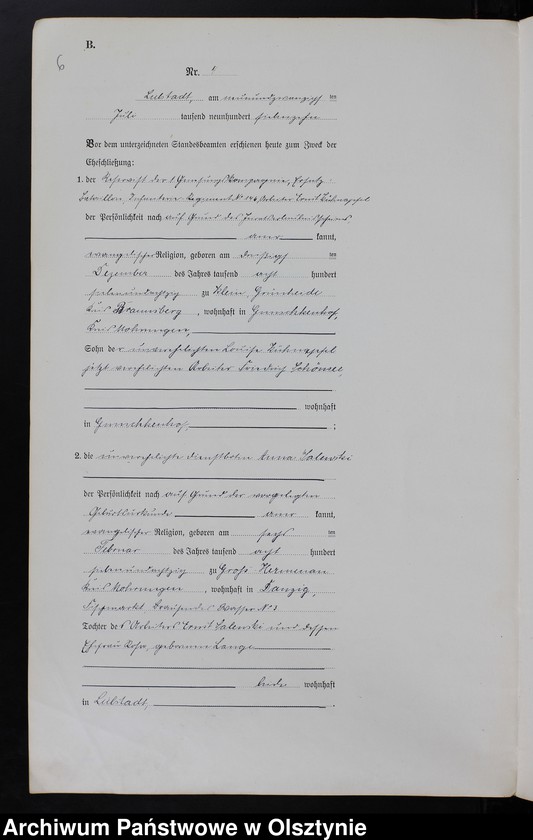 B.
6
Nr. 4
Liebstadt, am neunundzwanzigsten
Juli tausend neunhundert siebenzehn
Vor dem unterzeichneten Standesbeamten erschienen heute zum Zweck der
Eheschließung:
1. der Wehrmann der 1. Genesungs Kompagnie, Ersatz-
Bataillon, Infanterie Regiment N° Arbeiter Ernst Kuhnapfel
der Persönlichkeit nach auf Grund des
kannt,
evangelischer Religion, geboren am dreißigsten
Dezember des Jahres tausend acht hundert
siebenundachtzig zu Klein Grünheide
Kreis Braunsberg, wohnhaft in
Kreis Mohrungen,
Sohn der unverehelichten Louise Kuhnapfel
jetzt verehelichten Arbeiter Friedrich
wohnhaft
in ;
2. die unverehelichte Dienstbotin Anna Salewski
der Persönlichkeit nach auf Grund der vorgelegten
Geburtsurkunde anerkannt,
evangelischer Religion, geboren am sechsten
Februar des Jahres tausend acht hundert
siebenundachtzig zu Groß Hermenau
Kreis Mohrungen, wohnhaft in Danzig,
Fischmarkt, Brausendes Wasser N° 3
Tochter des Arbeiters Ernst Salewski und dessen
Ehefrau Rosa, geborenen Lange
beide wohnhaft
in Liebstadt, .
Archiwum Państwowe w Olsztynie